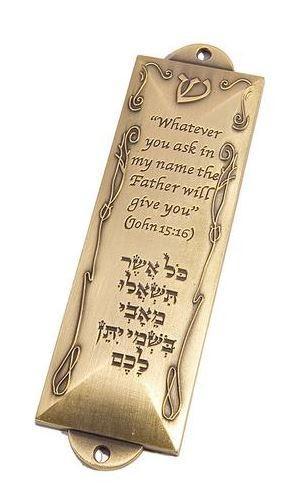 ש
“Whatever
you ask in
my name the
Father will
give you”
(John 15:16)
כֹּל אֲשֶׁר
תִּשְׁאֲלוּ
מֵאָבִי
בִּשְׁמִי יִתֵּן
לָכֶם